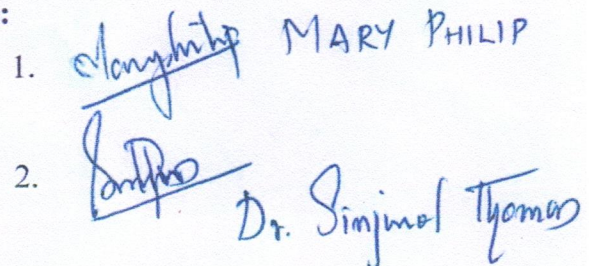 :
1. Maryphilip MARY PHILIP
2.
Dr. Sinjumol Thomas